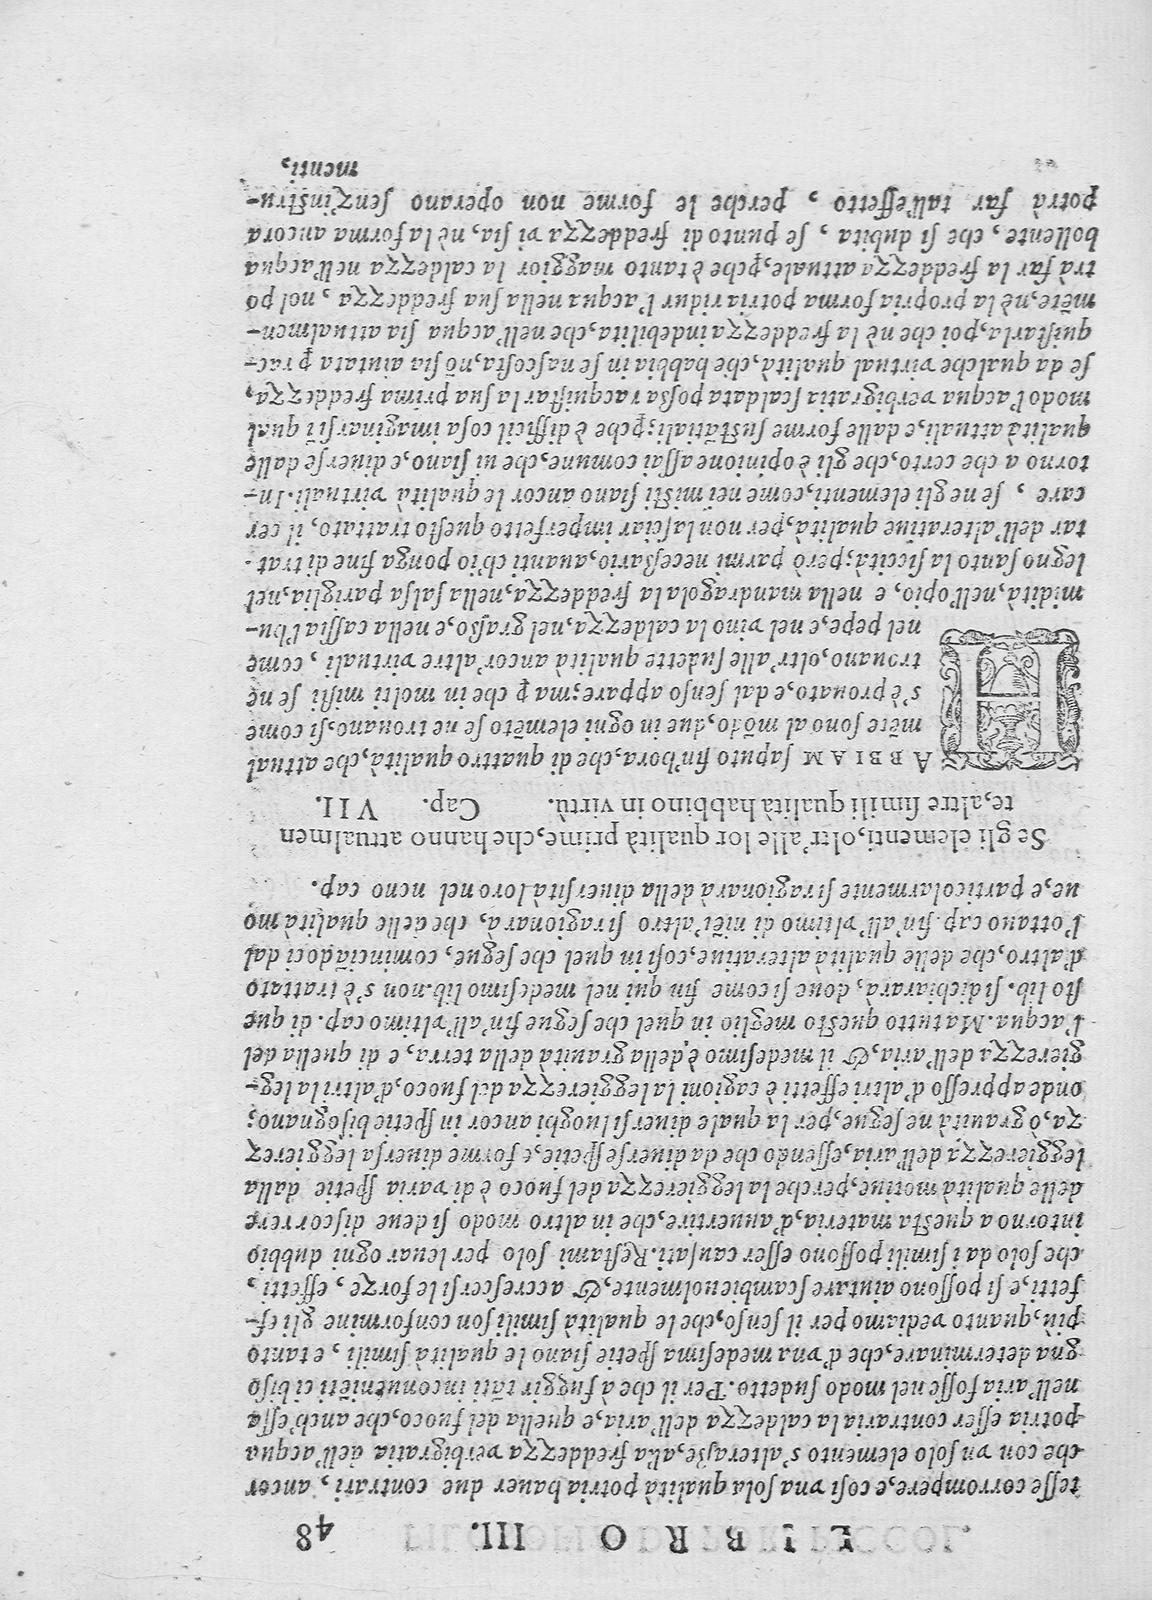 LIBRO III. 48
tesse corrompere, e cosi vna sola qualità potria hauer due contrari, ancor
che con vn solo elemento s'alterasse, alla freddezza verbigratia dell'acqua
potria esser contraria la caldezza dell'aria, e quella del fuoco, che anch'essa
nell'aria fosse nel modo sudetto. Per il che à fuggir tāti inconueniēti ci biso
gna determinare, che d'vna medesima spetie siano le qualità simili, e tanto
più, quanto vediamo per il senso, che le qualità simili son conforme gli ef-
fetti, e si possono aiutare scambieuolmente, & accrescersi le forze, effetti,
che solo da i simili possono esser causati. Restami solo per leuar ogni dubbio
intorno a questa materia, d'auuertire, che in altro modo si deue discorrere
delle qualità motiue, perche la leggierezza del fuoco è di varia spetie dalla
leggierezza dell'aria, essendo che da diuerse spetie, e forme diuersa leggierez
za, ò grauità ne segue, per la quale diuersi luoghi ancor in spetie bisognano;
onde appresso d'altri effetti è cagioni la leggierezza del fuoco, d'altri la leg-
gierezza dell'aria, & il medesimo è della grauità della terra, e di quella del
l'acqua. Ma tutto questo meglio in quel che segue fin'all'vltimo cap. di que
sto lib. si dichiarará, doue si come fin qui nel medesimo lib. non s'è trattato
d'altro, che delle qualità alteratiue, cosi in quel che segue, cominciādoci dal
l'ottauo cap. fin'all'vltimo di niēt'altro si ragionarà, che delle qualità mo
ue, e particolarmente si ragionarà della diuersità loro nel neno cap.
Se gli elementi, oltr'alle lor qualità prime, che hanno attualmen
te, altre simili qualità habbino in virtù. Cap. VII.
ABBIAM saputo fin'hora, che di quattro qualità, che attual
mēte sono al mōdo, due in ogni elemēto se ne trouano, si come
s'è prouato, e dal senso appare; ma ꝑ che in molti misti se ne
trouano, oltr'alle sudette qualità ancor'altre virtuali, come
nel pepe, e nel vino la caldezza, nel grasso, e nella cassia l'hu-
midità, nell'opio, e nella mandragola la freddezza, nella salsa pariglia, nel
legno santo la siccità; però parmi necessario, auanti ch'io ponga fine di trat-
tar dell'alteratiue qualità, per non lasciar imperfetto questo trattato, il cer
care, se ne gli elementi, come nei misti siano ancor le qualità virtuali. In-
torno a che certo, che gli è opinione assai comune, che ui siano, e diuerse dalle
qualità attuali, e dalle forme sustātiali; ꝑche è difficil cosa imaginarsi ī qual
modo l'acqua verbigratia scaldata possa racquistar la sua prima freddezza,
se da qualche virtual qualità, che habbia in se nascosta, nō sia aiutata ꝑ rac-
quistarla, poi che nè la freddezza indebilita, che nell'acqua sia attualmen-
mēte, nè la propria forma potria ridur l'acqua nella sua freddezza, nol po
trà far la freddezza attuale, ꝑche è tanto maggior la caldezza nell'acqua
bollente, che si dubita, se punto di freddezza vi sia, nè la forma ancora
potrà far tall'effetto, perche le forme non operano senz'instru-
menti,